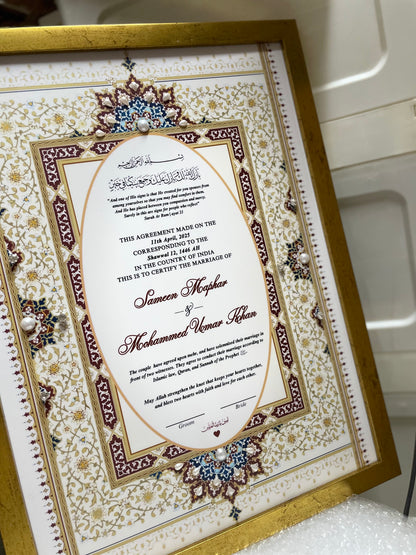 بسم الله الرحمن الرحيم
بارك الله لك وبارك عليك وجمع بينكما في خير
"And one of His signs is that He created for you spouses from
among yourselves so that you may find comfort in them.
And He has placed between you compassion and mercy.
Surely in this are signs for people who reflect"
Surah Ar Rum ( ayat 21
THIS AGREEMENT MADE ON THE
11th April, 2025
CORRESPONDING TO THE
Shawwal 12, 1446 AH
IN THE COUNTRY OF INDIA
THIS IS TO CERTIFY THE MARRIAGE OF
Sameen Mazhar
&
Mohammed Umar Khan
The couple have agreed upon mehr, and have solemnized their marriage in
front of two witnesses. They agree to conduct their marriage according to
Islamic law, Quran, and Sunnah of the Prophet ﷺ
May Allah strengthen the knot that keeps your hearts together,
and bless two hearts with faith and love for each other.
Groom
Bride